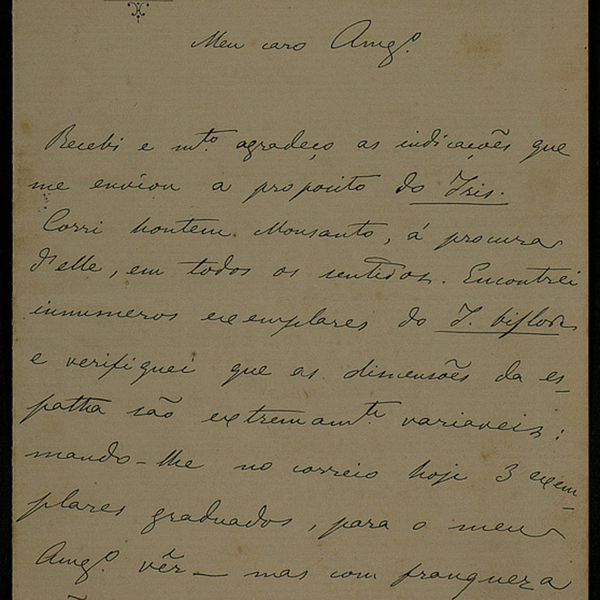 Meu caro Amgº.
Recebi e mtº. agradeço as indicações que
me enviou a proposito do Iris.
Corri hontem Monsanto, á procura
d'elle, em todos os sentidos. Encontrei
innumeros exemplares do I. biflora
e verifiquei que as dimensões da es-
patha são extremamte. variaveis:
mando-lhe no correio hoje 3 exem-
plares graduados, para o meu
Amgº. vêr — mas com franqueza